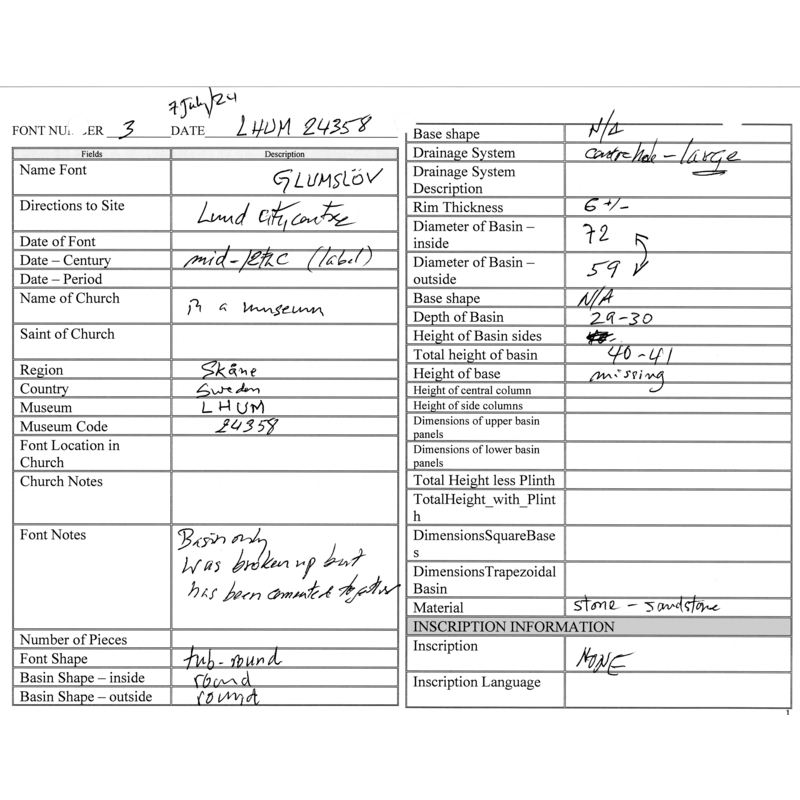 7 July/24
FONT NU ER 3 DATE LHUM 24358
Fields Description
Name Font GLUMSLÖV
Directions to Site Lund city centre
Date of Font
Date – Century mid-12thC (label)
Date – Period
Name of Church in a museum
Saint of Church
Region Skåne
Country Sweden
Museum LHUM
Museum Code 24358
Font Location in
Church
Church Notes
Font Notes Basin only
was broken up but
has been cemented together
Number of Pieces
Font Shape tub-round
Basin Shape – inside round
Basin Shape – outside round
Base shape N/A
Drainage System centre hole – large
Drainage System
Description
Rim Thickness 6 +/-
Diameter of Basin –
inside 72
Diameter of Basin –
outside 59
Base shape N/A
Depth of Basin 29-30
Height of Basin sides
Total height of basin 40-41
Height of base missing
Height of central column
Height of side columns
Dimensions of upper basin
panels
Dimensions of lower basin
panels
Total Height less Plinth
TotalHeight_with_Plint
h
DimensionsSquareBase
s
DimensionsTrapezoidal
Basin
Material stone – sandstone
INSCRIPTION INFORMATION
Inscription NONE
Inscription Language
1